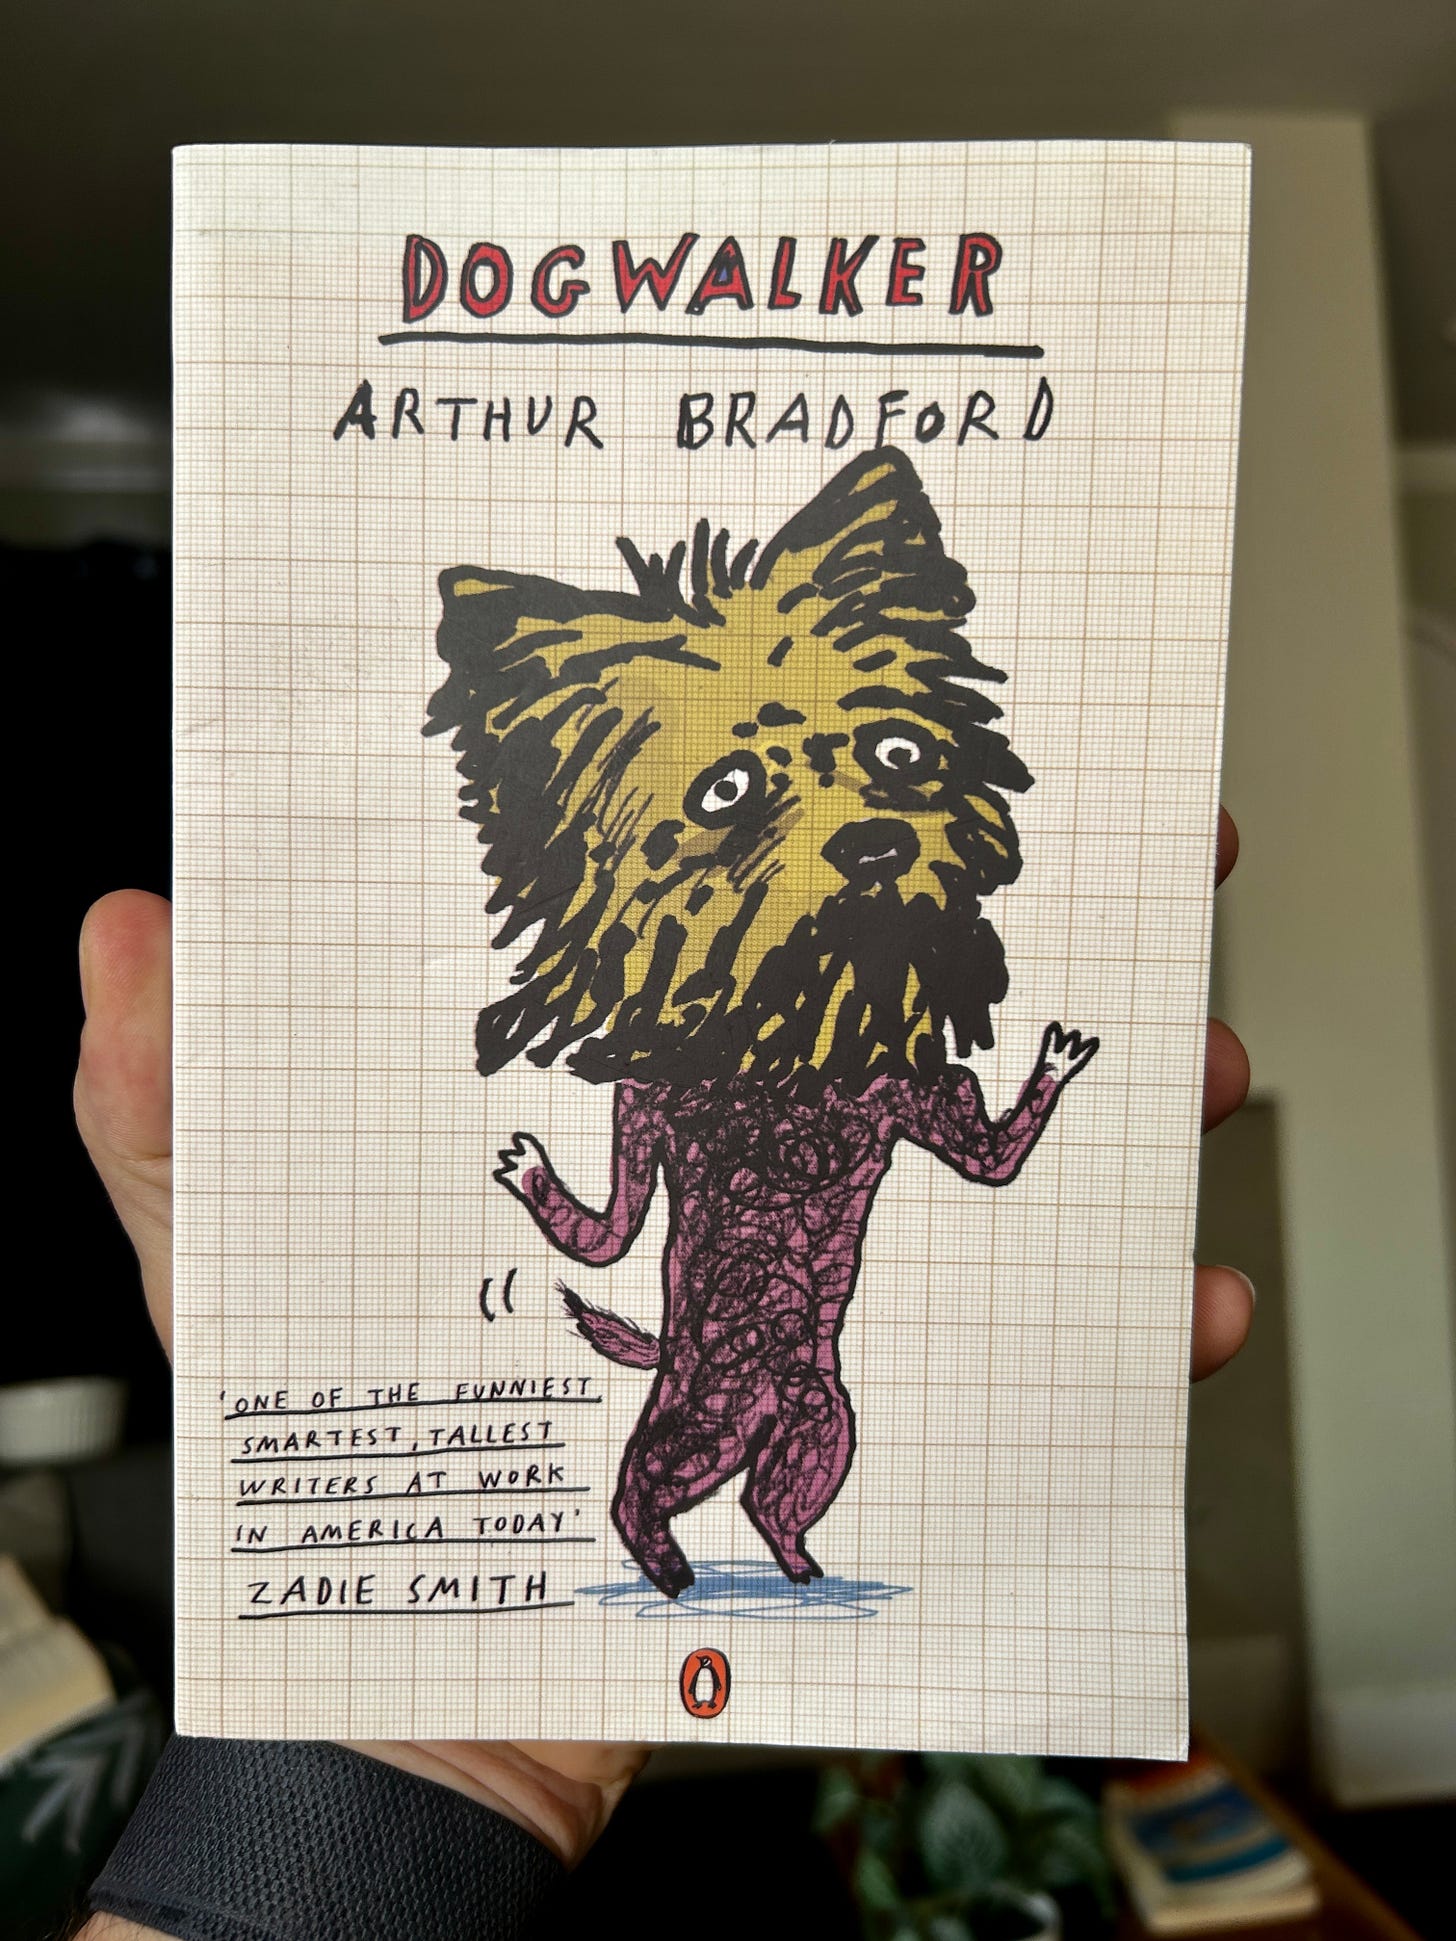 DOGWALKER
ARTHUR BRADFORD
'ONE OF THE FUNNIEST
SMARTEST, TALLEST
WRITERS AT WORK
IN AMERICA TODAY'
ZADIE SMITH